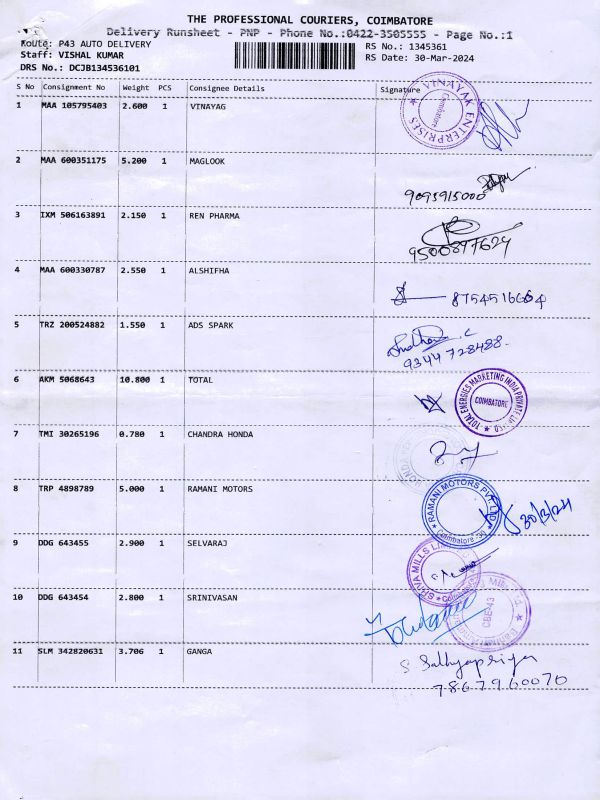 THE PROFESSIONAL COURIERS, COIMBATORE
Delivery Runsheet - PNP - Phone No.:0422-3505555 - Page No.:1
Route: P43 AUTO DELIVERY
RS No.: 1345361
Staff: VISHAL KUMAR
RS Date: 30-Mar-2024
DRS No.: DCJB134536101
S No Consignment No Weight PCS Consignee Details Signature
1 MAA 105795403 2.600 1 VINAYAG
VINAYAK ENTERPRISES Coimbatore
2 MAA 600351175 5.200 1 MAGLOOK
9093915000
3 IXM 506163891 2.150 1 REN PHARMA
9500897629
4 MAA 600330787 2.550 1 ALSHIFHA
8754516664
5 TRZ 200524882 1.550 1 ADS SPARK
9344728488
6 AKM 5068643 10.800 1 TOTAL
TOTAL ENERGIES MARKETING INDIA PRIVATE LTD COIMBATORE
7 TMI 30265196 0.780 1 CHANDRA HONDA
8 TRP 4898789 5.000 1 RAMANI MOTORS
RAMANI MOTORS PVT. LTD Coimbatore
30/3/24
9 DDG 643455 2.900 1 SELVARAJ
SHIVA MILLS
10 DDG 643454 2.800 1 SRINIVASAN
CBE-43
11 SLM 342820631 3.706 1 GANGA
S Sathyapriya
7867960070